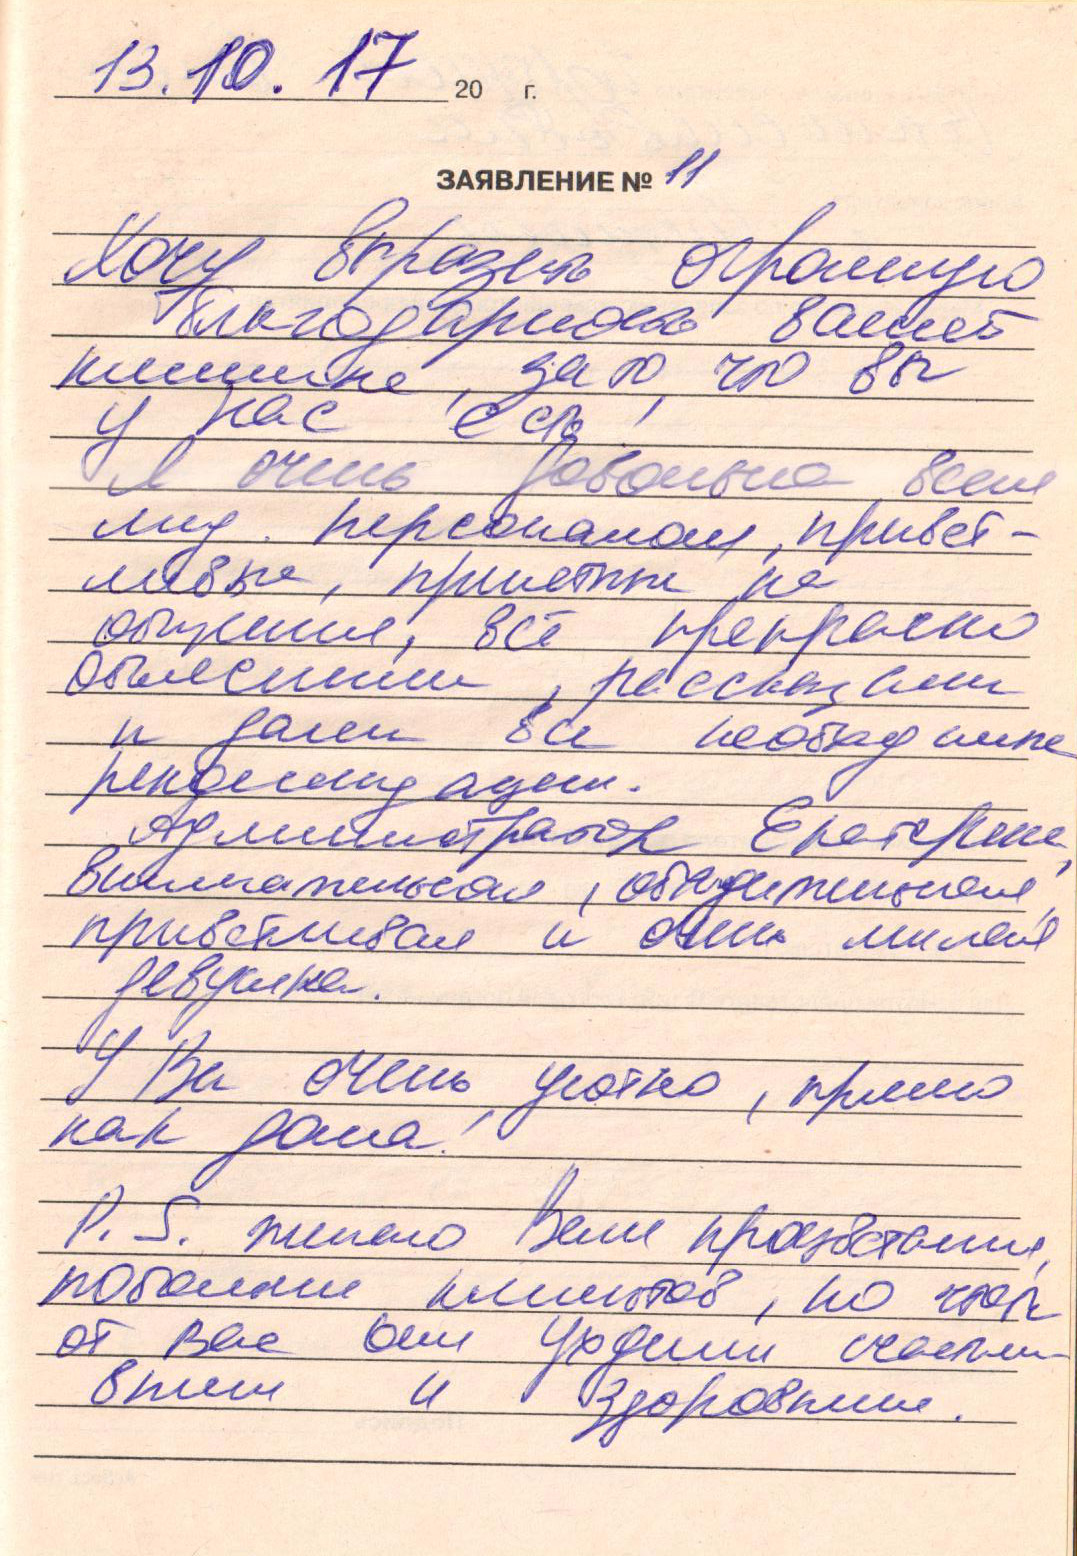 13.10.17 20 г.
ЗАЯВЛЕНИЕ № 11
Хочу выразить огромную
благодарность вашей
клинике, за то, что вы
у нас есть!
Я очень довольна всем
мед. персоналом, привет-
ливые, приятные на
общение, всё прекрасно
объяснили, рассказали
и дали все необходимые
рекомендации.
Администратор Екатерина,
внимательная, обходительная,
приветливая и очень милая
девушка.
У Вас очень уютно, прямо
как дома!
P.S. желаю Вам процветания,
побольше клиентов, но чтобы
от Вас они уходили счастли-
выми и здоровыми.